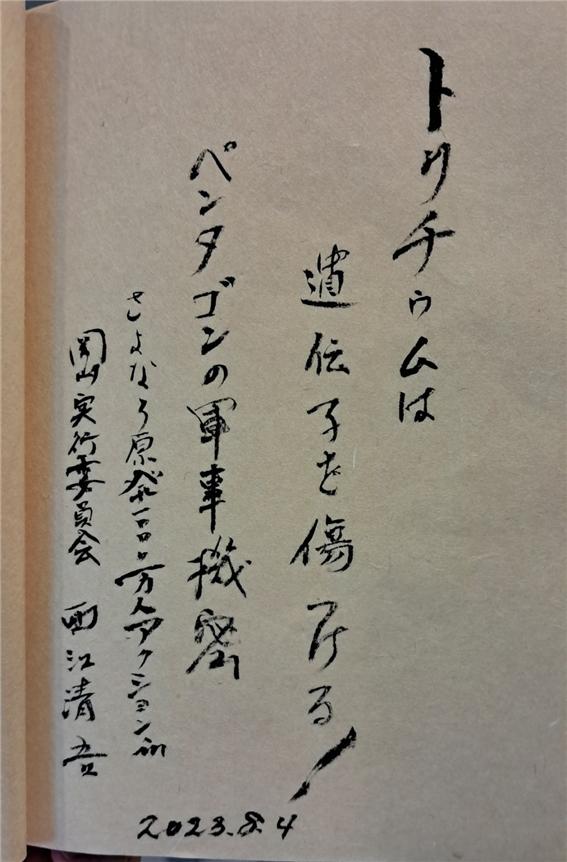 トリチウムは
遺伝子を傷つける!
ペンタゴンの軍事機密
さよなら原発一000万人アクションin
岡山実行委員会 西江清吾
2023.8.4